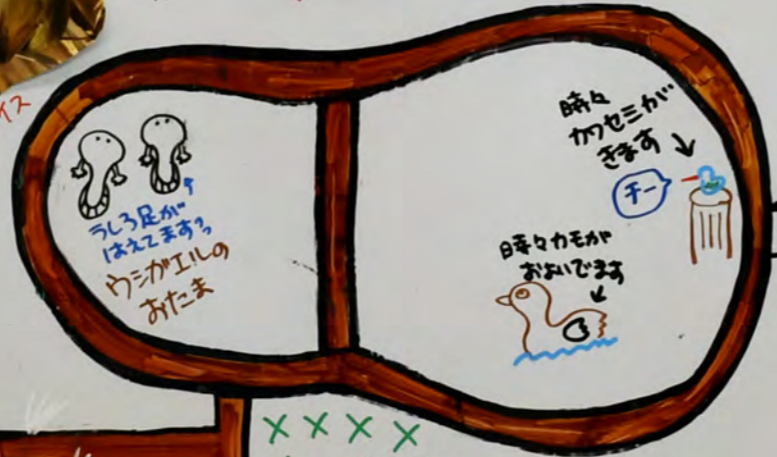 イス
うしろ足が
はえてますっ
ウシガエルの
おたま
時々
カワセミが
きます
チー
時々カモが
およいでます
××××